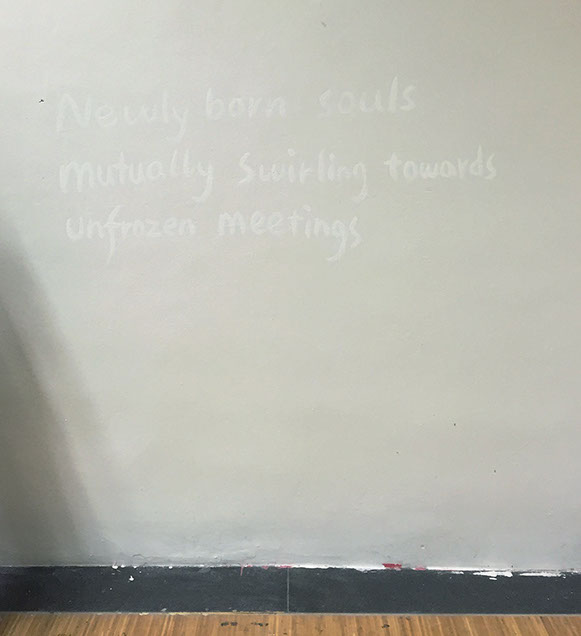 Newly born souls
mutually swirling towards
unfrozen meetings